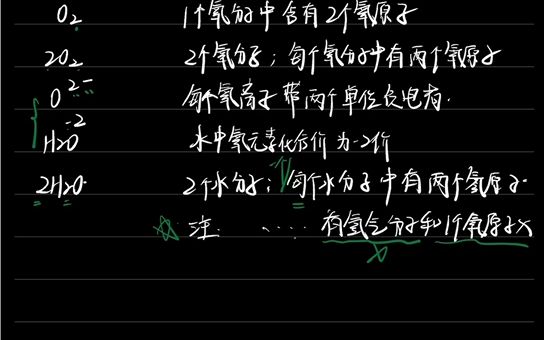 O₂ 1个氧分子中含有2个氧原子
2O₂ 2个氧分子；每个氧分子中有两个氧原子
O²⁻ 每个氧离子带两个单位负电荷.
H₂O⁻² 水中氧元素化合价为-2价
2H₂O 2个水分子；每个水分子中有两个氢原子.
注 ..... 有氢气分子和1个氧原子X